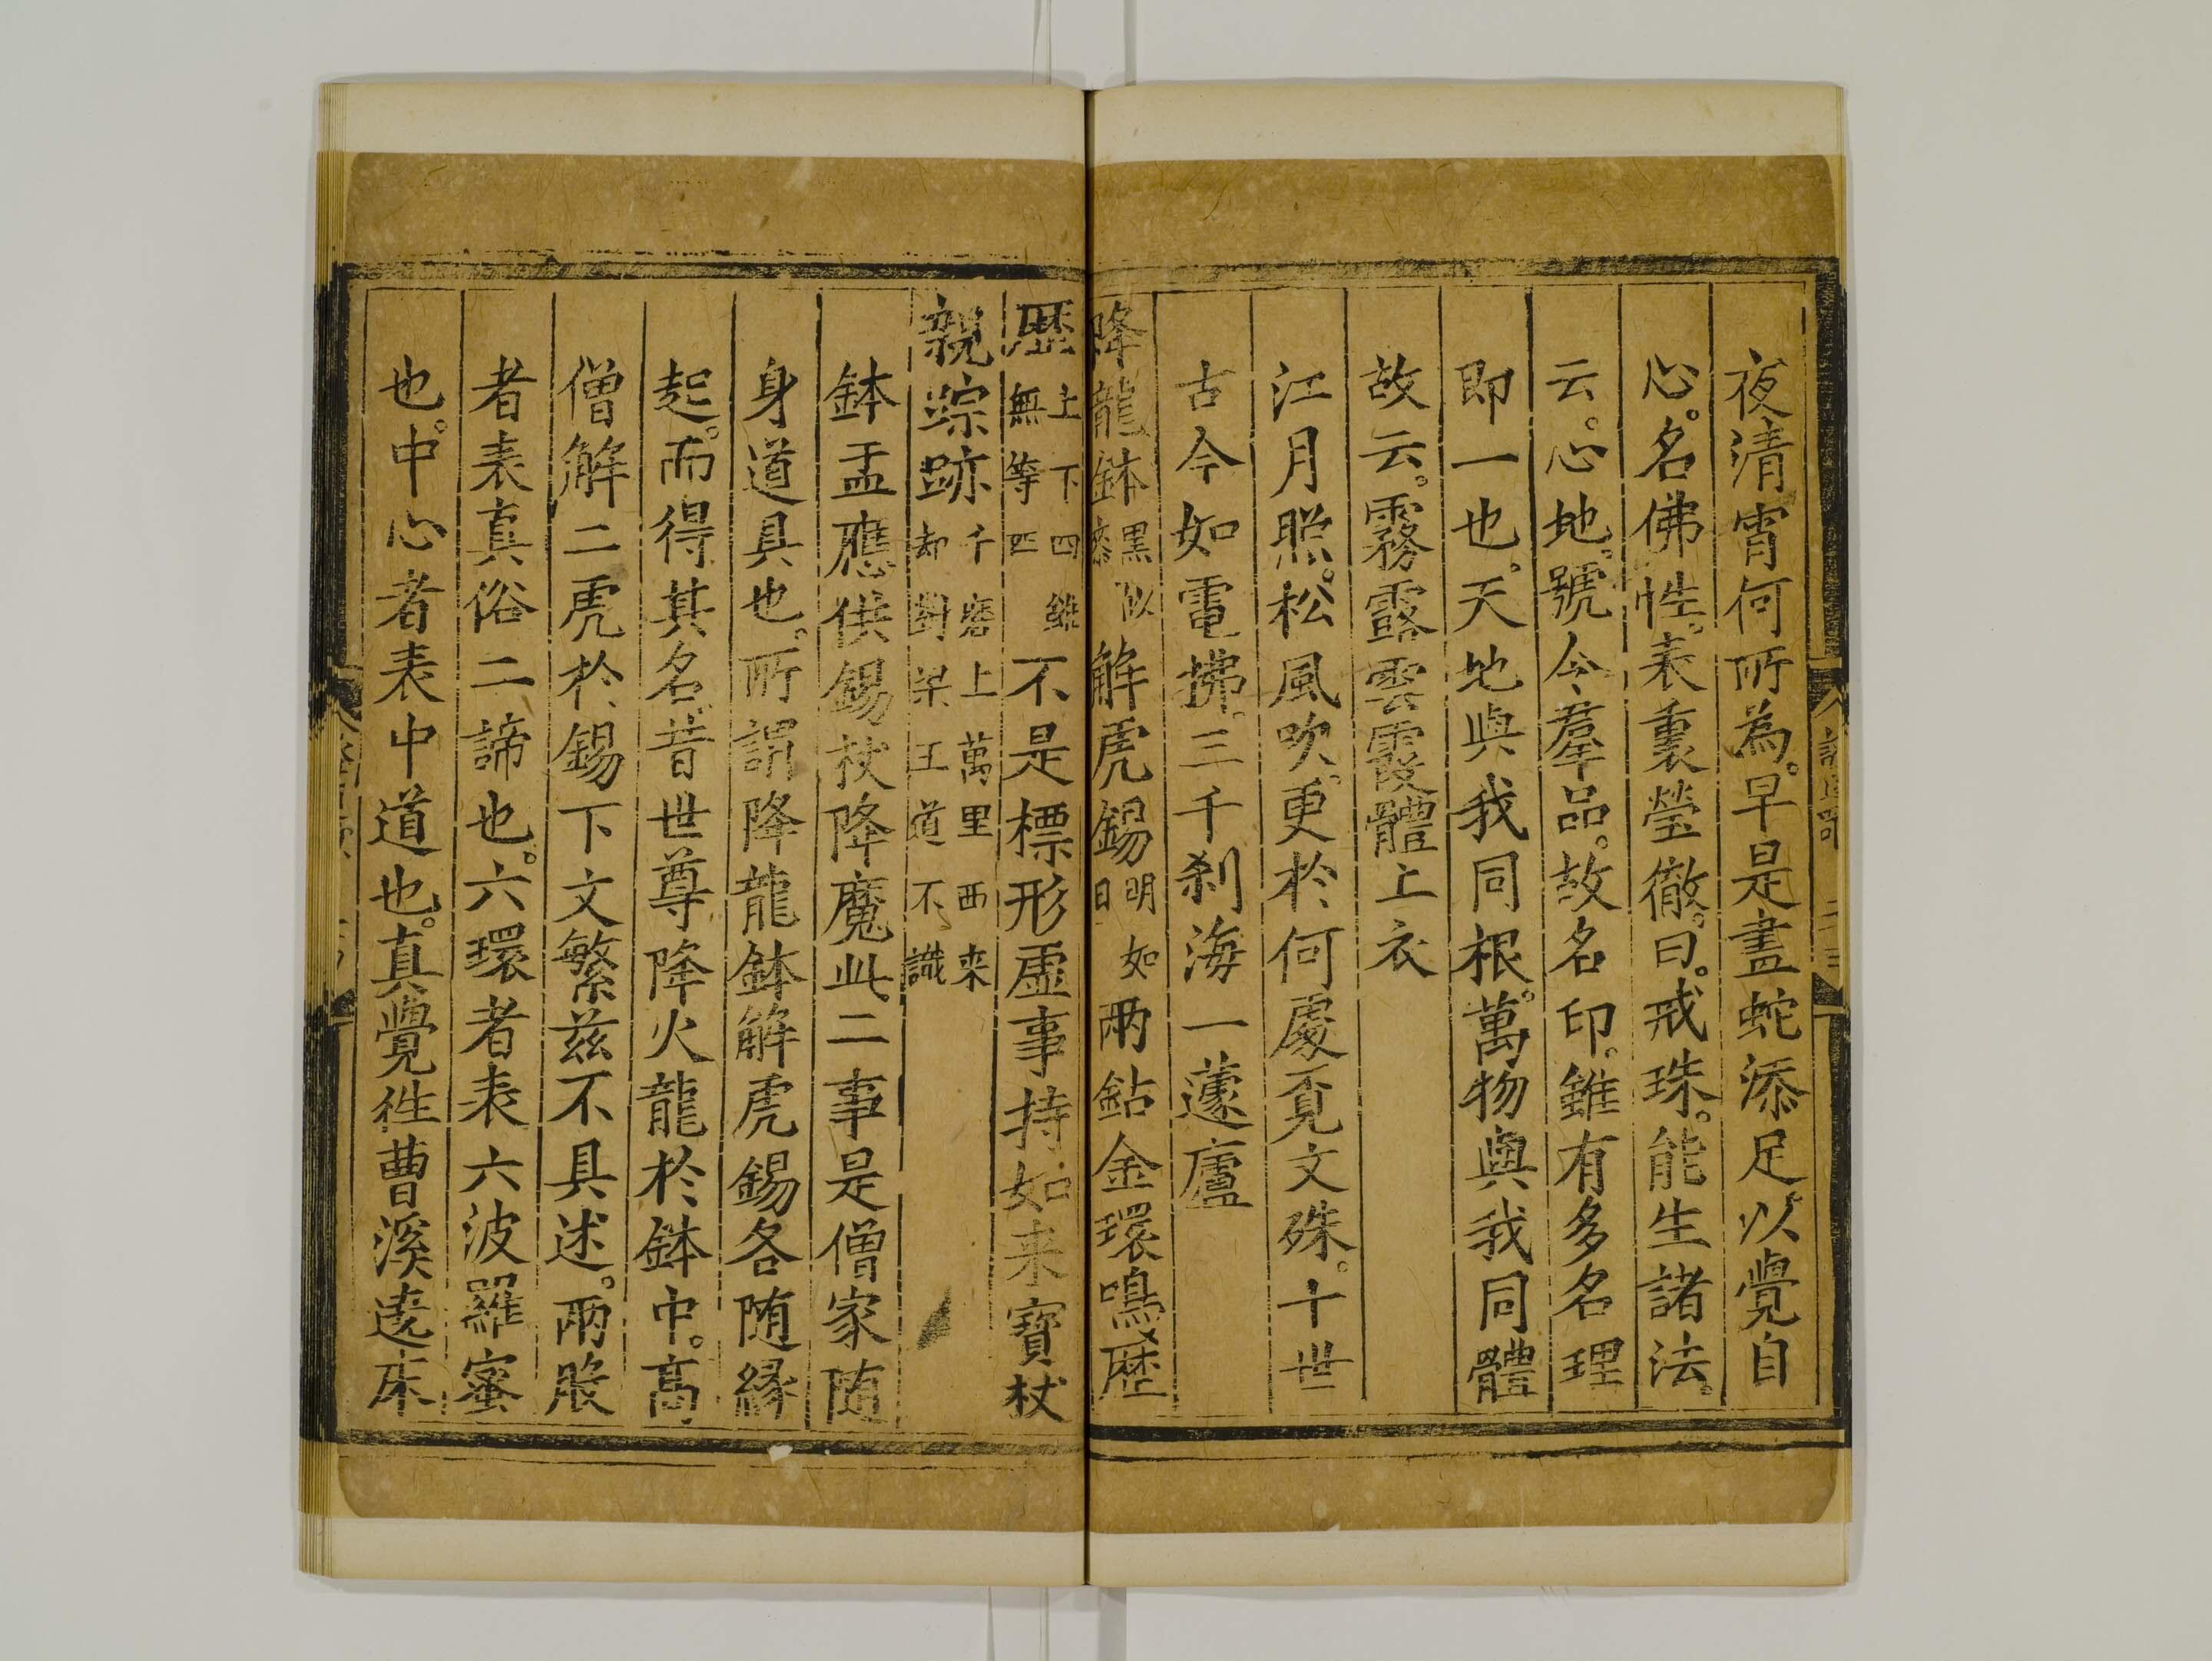 夜清宵何所為。早是畫蛇添足以覺自
心。名佛性。表裏瑩徹。曰。戒珠。能生諸法。
云。心地。號令羣品。故名印。雖有多名理
即一也。天地與我同根。萬物與我同體
故云。霧露雲霞體上衣
江月照。松風吹。更於何處覓文殊。十世
古今如電拂。三千刹海一蘧廬
降龍鉢黑似漆解虎錫明如日兩鈷金環鳴歷
歷上下四維無等匹不是標形虛事持如来寶杖
親踪跡千磨上萬里西来却對梁王道不識
鉢盂應供錫杖降魔此二事是僧家随
身道具也。所謂降龍鉢解虎錫各随縁
起。而得其名。昔世尊降火龍於鉢中。高
僧解二虎於錫下文繁兹不具述。兩股
者表真俗二諦也。六環者表六波羅蜜
也。中心者表中道也。真覺徃曹溪遶床